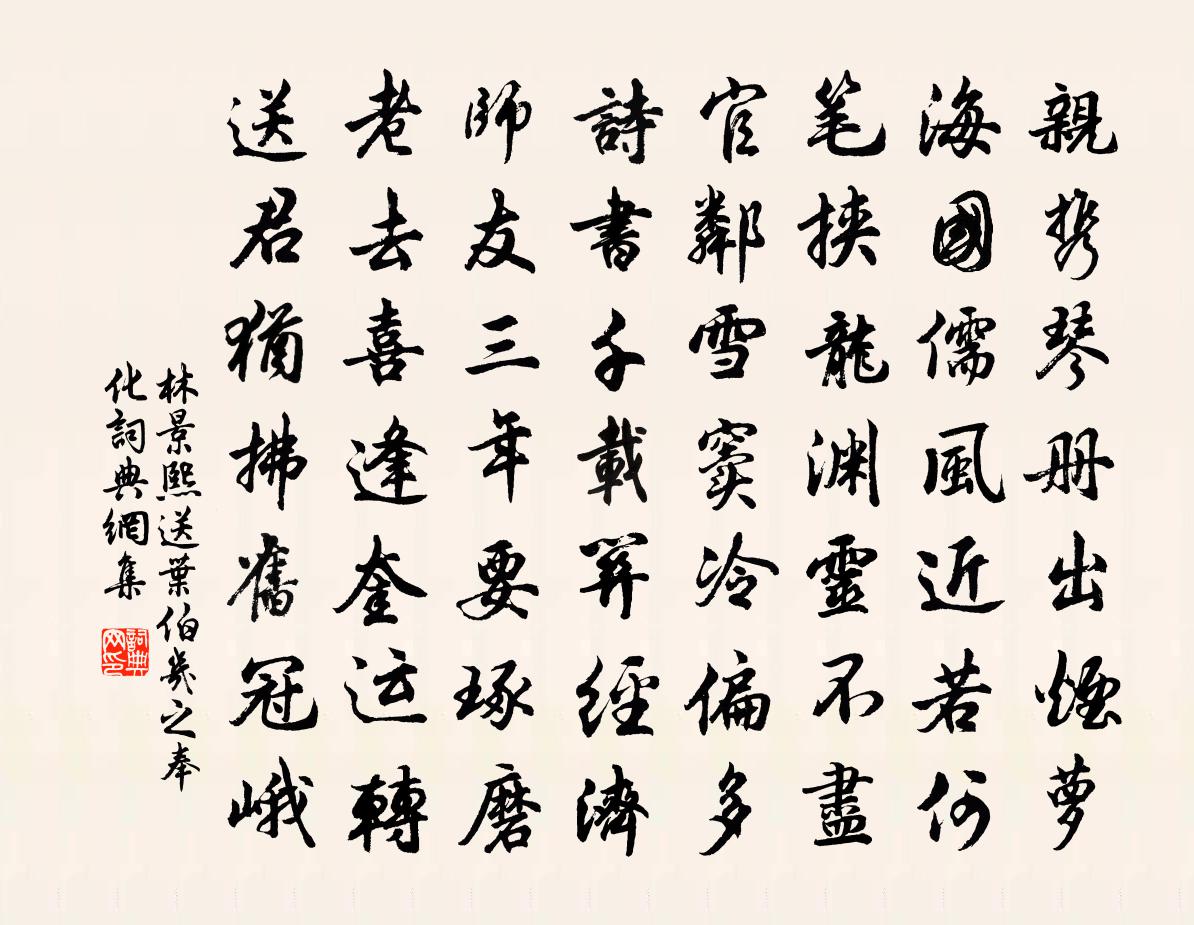 親携琴册出煙萝
海國儒風近若何
笔挾龍渊靈不盡
官鄰雪窦冷偏多
詩書千載筭經濟
師友三年要琢磨
老去喜逢奎运轉
送君猶拂舊冠峨
林景熙送葉伯幾之奉
化詞典網集
詞典网印